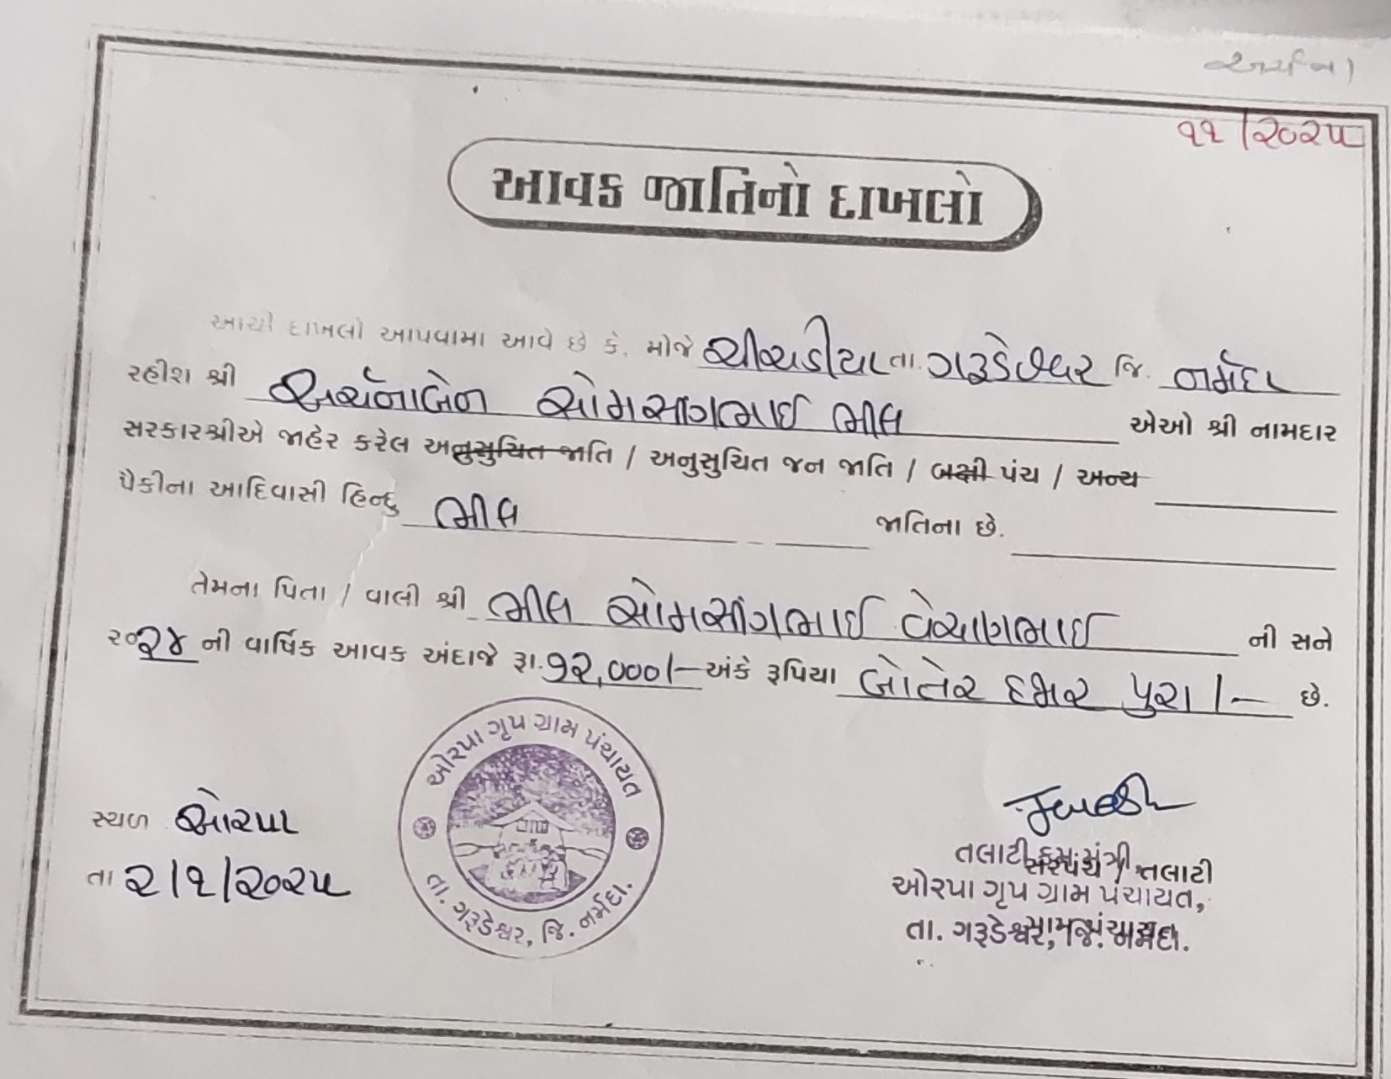 અર્ચના
૧૧/૨૦૨૫
આવક જાતિનો દાખલો
આથી દાખલો આપવામા આવે છે કે. મોજે ચીચડીયા તા. ગરૂડેશ્વર જિ. નર્મદા
રહીશ શ્રી અર્ચનાબેન સોમસાંગભાઈ ભીલ એઓ શ્રી નામદાર
સરકારશ્રીએ જાહેર કરેલ અનુસુચિત જાતિ / અનુસુચિત જન જાતિ / બક્ષી પંચ / અન્ય
પૈકીના આદિવાસી હિન્દુ ભીલ જાતિના છે.
તેમના પિતા / વાલી શ્રી ભીલ સોમસાંગભાઈ વેચાણભાઈ ની સને
૨૦૨૪ ની વાર્ષિક આવક અંદાજે રૂા. ૭૨,૦૦૦/– અંકે રૂપિયા બોતેર હજાર પુરા /– છે.
ઓરપા ગૃપ ગ્રામ પંચાયત
તા. ગરૂડેશ્વર, જિ. નર્મદા.
સ્થળ ઓરપા
તા ૨/૧/૨૦૨૫
તલાટી કમ મંત્રી
સરપંચ / તલાટી
ઓરપા ગૃપ ગ્રામ પંચાયત,
તા. ગરૂડેશ્વર, જિ. નર્મદા.